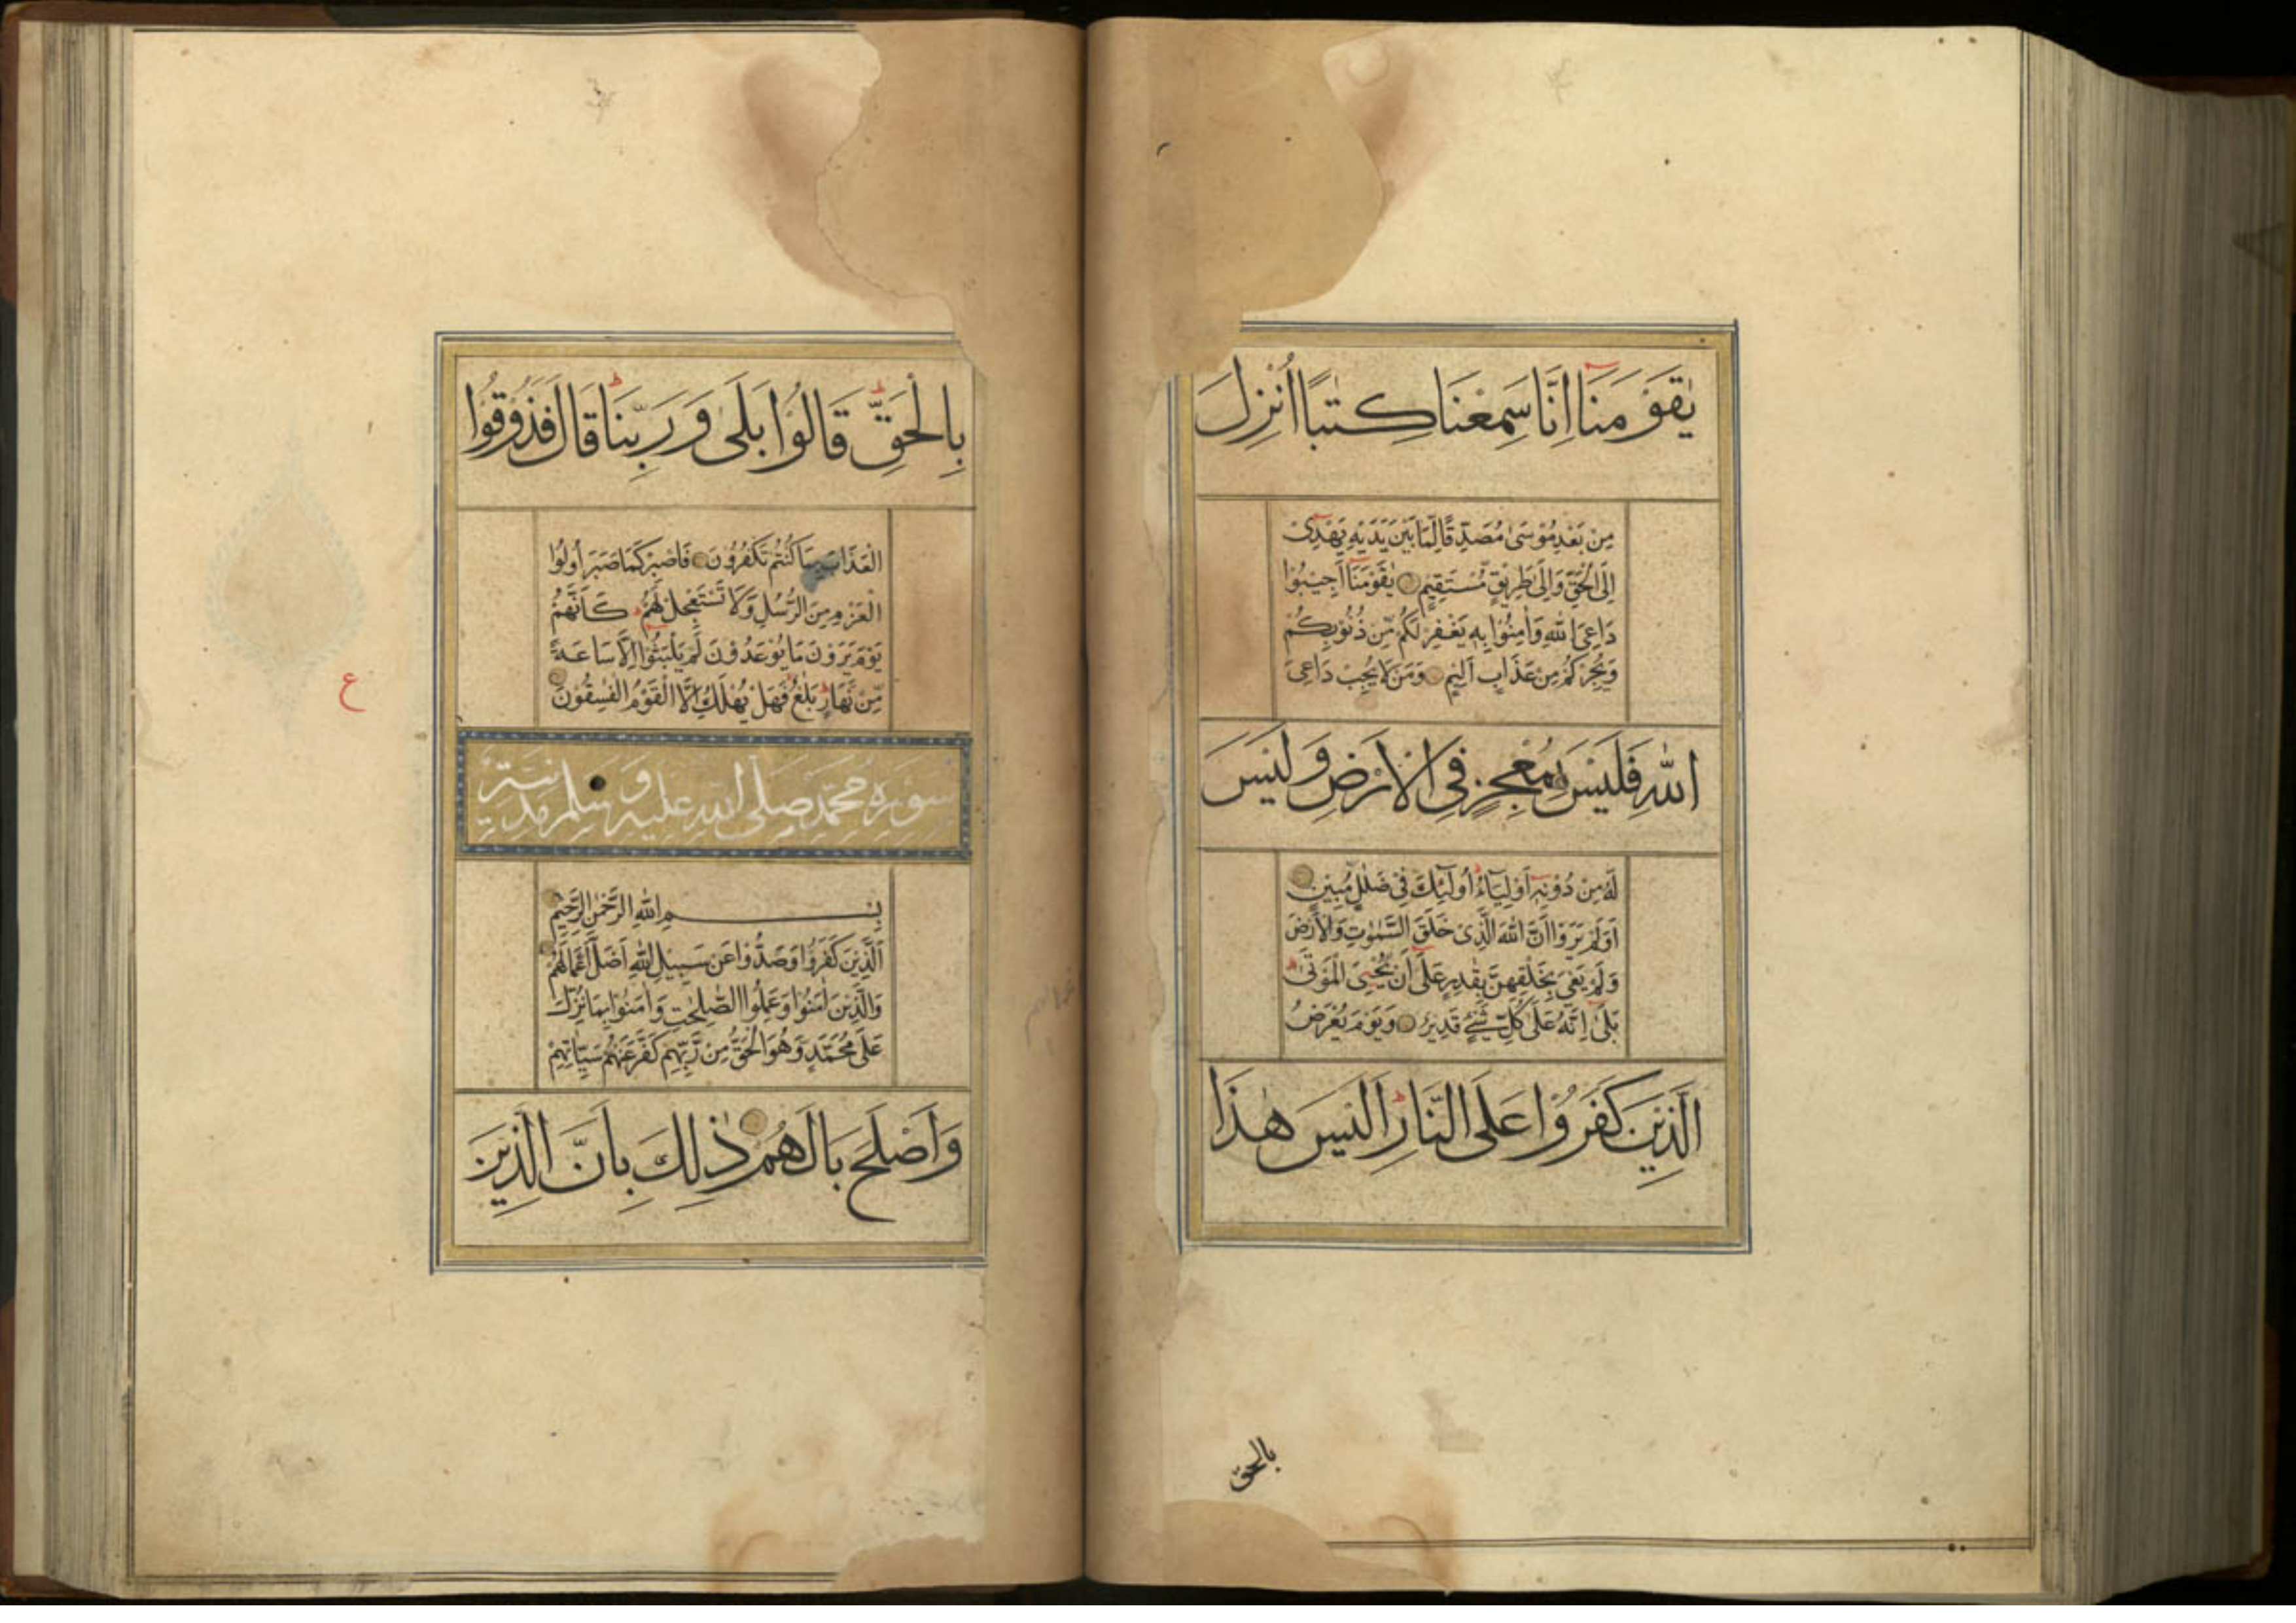 يٰقَوْمَنَا اِنَّا سَمِعْنَا كِتٰبًا اُنْزِلَ
مِنْ بَعْدِ مُوْسٰى مُصَدِّقًا لِّمَا بَيْنَ يَدَيْهِ يَهْدِىْ
اِلَى الْحَقِّ وَاِلٰى طَرِيْقٍ مُّسْتَقِيْمٍ يٰقَوْمَنَا اَجِيْبُوْا
دَاعِىَ اللّٰهِ وَاٰمِنُوْا بِهٖ يَغْفِرْ لَكُمْ مِّنْ ذُنُوْبِكُمْ
وَيُجِرْكُمْ مِنْ عَذَابٍ اَلِيْمٍ وَمَنْ لَا يُجِبْ دَاعِىَ
اللّٰهِ فَلَيْسَ بِمُعْجِزٍ فِى الْاَرْضِ وَلَيْسَ
لَهٗ مِنْ دُوْنِهٖٓ اَوْلِيَآءُ اُولٰٓئِكَ فِىْ ضَلٰلٍ مُّبِيْنٍ
اَوَلَمْ يَرَوْا اَنَّ اللّٰهَ الَّذِىْ خَلَقَ السَّمٰوٰتِ وَالْاَرْضَ
وَلَمْ يَعْىَ بِخَلْقِهِنَّ بِقٰدِرٍ عَلٰٓى اَنْ يُّحْيِىَ الْمَوْتٰى
بَلٰى اِنَّهٗ عَلٰى كُلِّ شَىْءٍ قَدِيْرٌ وَيَوْمَ يُعْرَضُ
الَّذِيْنَ كَفَرُوْا عَلَى النَّارِ اَلَيْسَ هٰذَا
بالحق
بِالْحَقِّ قَالُوْا بَلٰى وَرَبِّنَا قَالَ فَذُوْقُوا
الْعَذَابَ بِمَا كُنْتُمْ تَكْفُرُوْنَ فَاصْبِرْ كَمَا صَبَرَ اُولُوا
الْعَزْمِ مِنَ الرُّسُلِ وَلَا تَسْتَعْجِلْ لَهُمْ كَاَنَّهُمْ
يَوْمَ يَرَوْنَ مَا يُوْعَدُوْنَ لَمْ يَلْبَثُوْٓا اِلَّا سَاعَةً
مِّنْ نَّهَارٍ بَلٰغٌ فَهَلْ يُهْلَكُ اِلَّا الْقَوْمُ الْفٰسِقُوْنَ
ع
سورة محمد صلى الله عليه و سلم مدنية
بِسْمِ اللهِ الرَّحْمٰنِ الرَّحِيْمِ
اَلَّذِيْنَ كَفَرُوْا وَصَدُّوْا عَنْ سَبِيْلِ اللهِ اَضَلَّ اَعْمَالَهُمْ
وَالَّذِيْنَ اٰمَنُوْا وَعَمِلُوا الصّٰلِحٰتِ وَاٰمَنُوْا بِمَا نُزِّلَ
عَلٰى مُحَمَّدٍ وَهُوَ الْحَقُّ مِنْ رَّبِّهِمْ كَفَّرَ عَنْهُمْ سَيِّاٰتِهِمْ
وَاَصْلَحَ بَالَهُمْ ذٰلِكَ بِاَنَّ الَّذِيْنَ